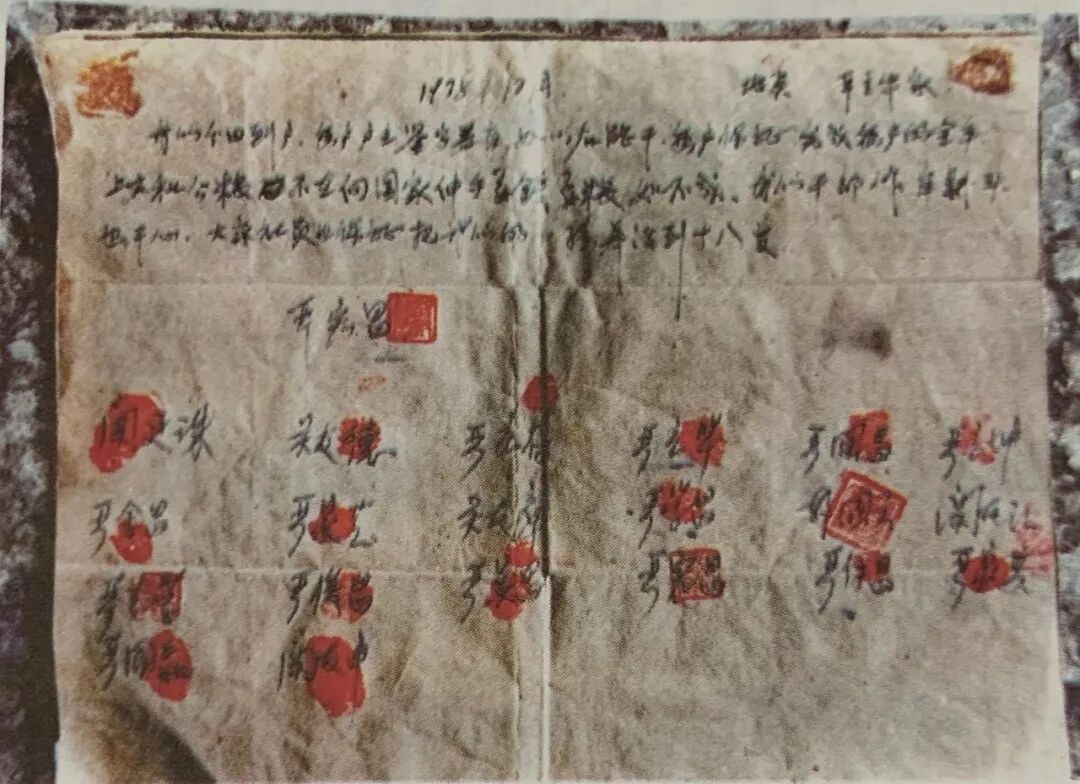 1978年12月 地点 严立华家
我们分田到户,每户户主签字盖章,如以后能干,每户保证完成每户的全年
上交和公粮不在向国家伸手要钱要粮,如不成,我们干部作牢
也干心,大家社员也保证把我们的小孩养活到十八岁
严宏昌
关友德 严立华 严国昌 严立坤
严金昌 严家芝 关友章 严学昌 关友江
严俊昌 严美昌 严付昌 严家其
严国品 关友申